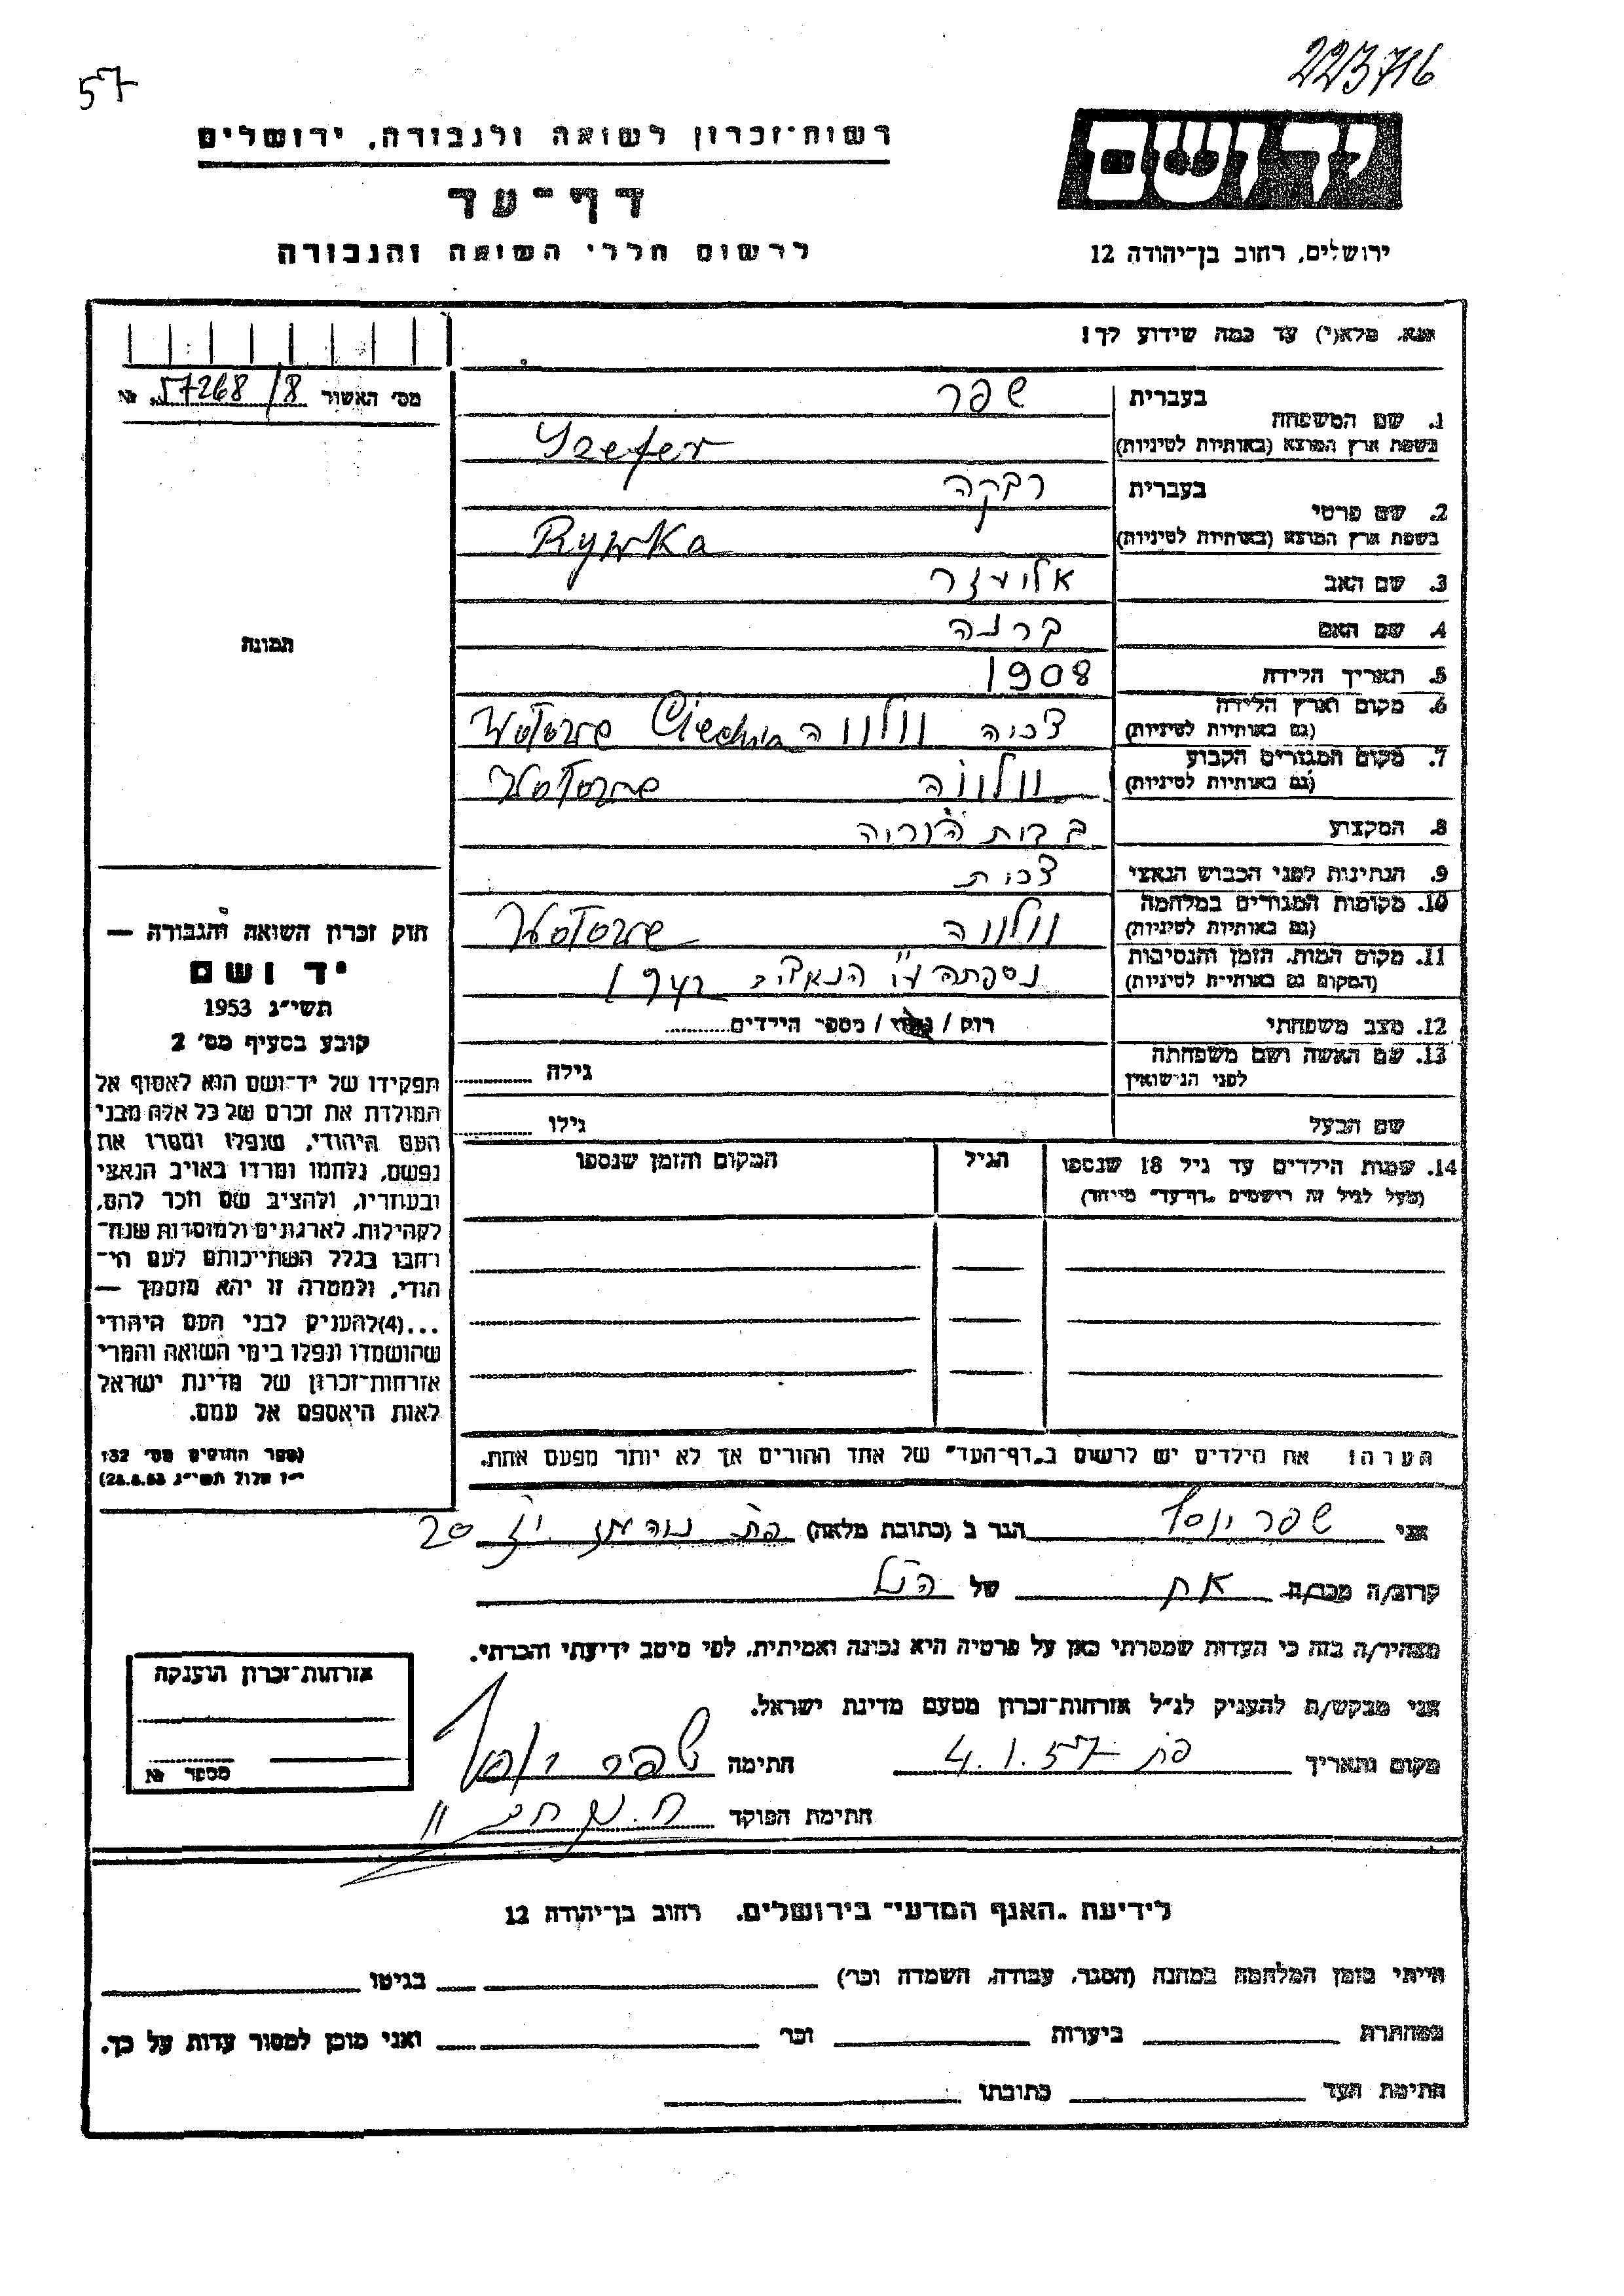 57
223716
יד ושם
רשות-זכרון לשואה ולגבורה, ירושלים
דף-עד
לרשום חללי השואה והגבורה
ירושלים, רחוב בן-יהודה 12
אנא, מלא(י) עד כמה שידוע לך!
מס' האשור 57268/8 №
תמונה
בעברית שפר
1. שם המשפחה
בשפת ארץ המוצא (באותיות לטיניות) Szefer
בעברית רבקה
2. שם פרטי
בשפת ארץ המוצא (באותיות לטיניות) Rywka
3. שם האב אליעזר
4. שם האם
5. תאריך הלידה 1908
6. מקום וארץ הלידה
(גם באותיות לטיניות)
7. מקום המגורים הקבוע
(גם באותיות לטיניות)
8. המקצוע
9. הנתינות לפני הכבוש הנאצי
10. מקומות המגורים במלחמה
(גם באותיות לטיניות)
11. מקום המות, הזמן והנסיבות
(המקום גם באותיות לטיניות) נספתה ע"י
12. מצב משפחתי רוק / / מספר הילדים
13. שם האשה ושם משפחתה
לפני הנישואין גילה
שם הבעל גילו
14. שמות הילדים עד גיל 18 שנספו הגיל המקום והזמן שנספו
(מעל לגיל זה רושמים "דף-עד" מיוחד)
הערה: את הילדים יש לרשום ב"דף-העד" של אחד ההורים אך לא יותר מפעם אחת.
חוק זכרון השואה והגבורה —
יד ושם
תשי"ג 1953
קובע בסעיף מס' 2
תפקידו של יד-ושם הוא לאסוף אל
המולדת את זכרם של כל אלה מבני
העם היהודי, שנפלו ומסרו את
נפשם, נלחמו ומרדו באויב הנאצי
ובעוזריו, ולהציב שם וזכר להם,
לקהילות, לארגונים ולמוסדות שנח-
רבו בגלל השתייכותם לעם הי-
הודי, ולמטרה זו יהא מוסמך —
...(4)להעניק לבני העם היהודי
שהושמדו ונפלו בימי השואה והמרי
אזרחות-זכרון של מדינת ישראל
לאות היאספם אל עמם.
(ספר החוקים מס' 132
י"ז אלול תשי"ג 28.8.53)
אני שפר יוסף הגר ב (כתובת מלאה) 20
קרוב/ה מכר/ה אח של הנ"ל
מצהיר/ה בזה כי העדות שמסרתי כאן על פרטיה היא נכונה ואמיתית, לפי מיטב ידיעתי והכרתי.
אני מבקש/ת להעניק לנ"ל אזרחות-זכרון מטעם מדינת ישראל.
מקום ותאריך 4.1.57 חתימה שפר יוסף
חתימת הפוקד
אזרחות-זכרון הוענקה
מספר №
לידיעת "האגף המדעי" בירושלים, רחוב בן-יהודה 12
הייתי בזמן המלחמה במחנה (הסגר, עבודה, השמדה וכו') בגיטו
במחתרת ביערות וכו' ואני מוכן למסור עדות על כך.
חתימת העד כתובתו